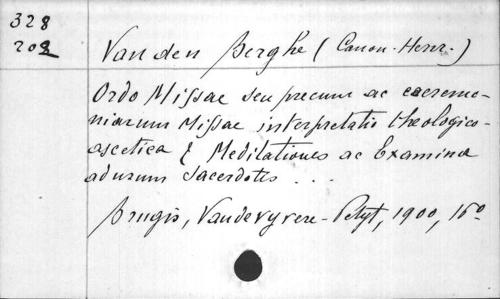 328
202
Van den Berghe (Canon. Henr.)
Ordo Missae seu precum ac caeremo-
niarum Missae interpretatio theologico-
ascetica & Meditationes ac Examina
ad usum sacerdotis ...
Brugis, Vandevyvere-Petyt, 1900, 16o